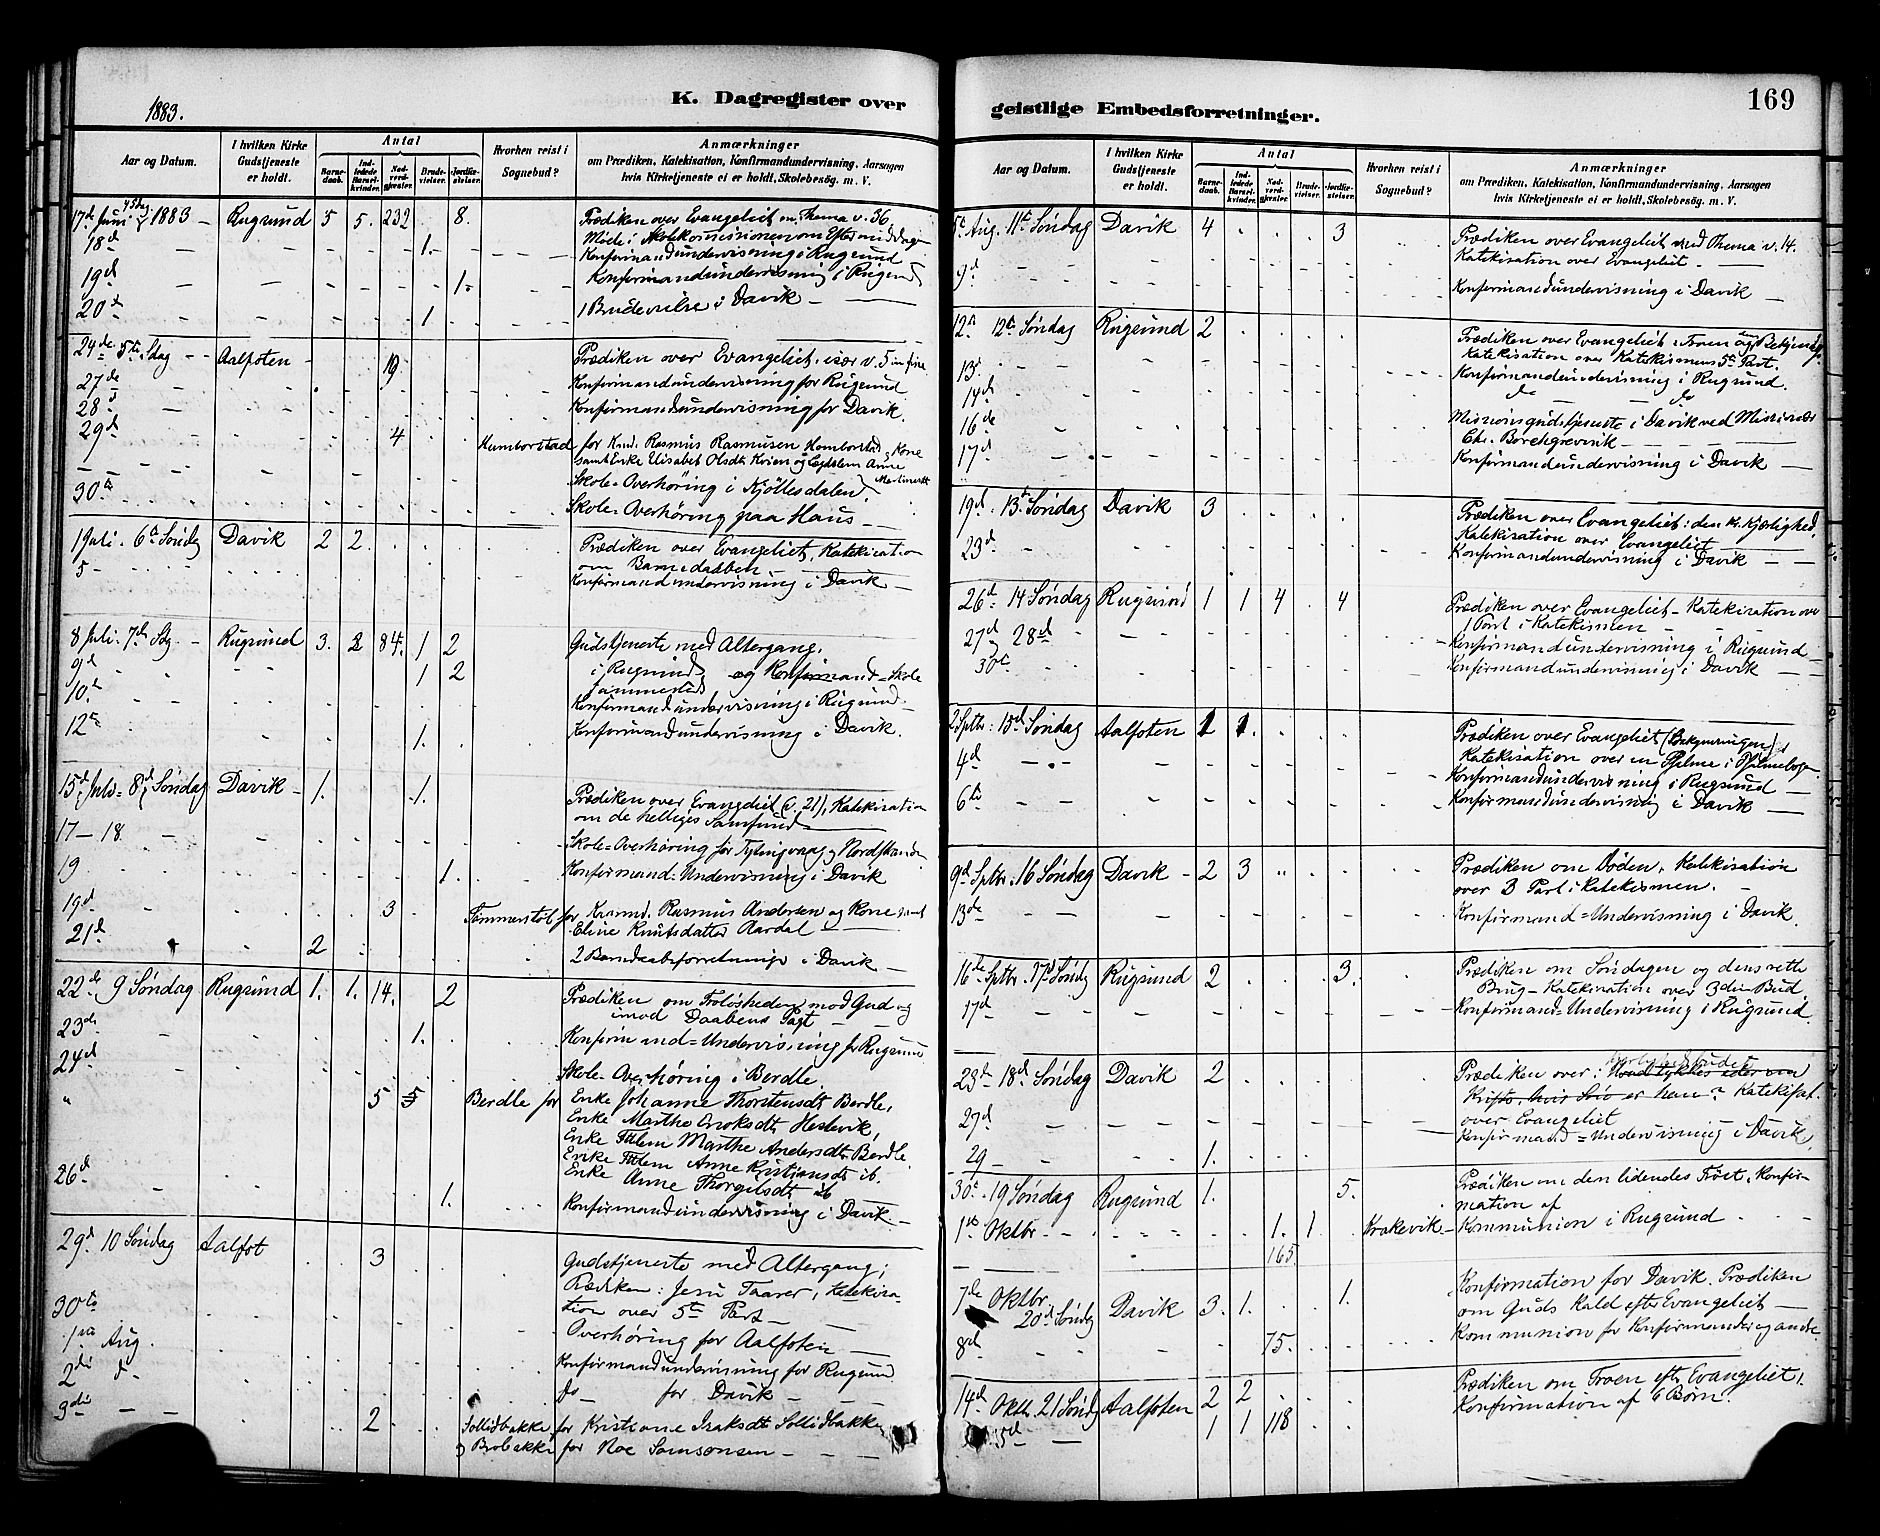 1883.
K. Dagregister over
Aar og Datum.
I hvilken Kirke Gudstjeneste er holdt.
Antal
Barnedaab.
Indledede Barselkvinder.
Nadverdgjester.
Brudevielser.
Jordfæstelser.
Hvorhen reist i Sognebud?
Anmærkninger
om Prædiken, Katekisation, Konfirmandundervisning, Aarsagen
hvis Kirketjeneste ei er holdt, Skolebesøg. m. V.
17de Juni 4 Stg 1883 - Rugsund 5 5. 232 8. Prædiken over Evangeliet m. Thema v. 36
18d 1. Møde i Skolekommissionen om Eftermiddagen
Konfirmandundervisning i Rugsund
19d 1. Konfirmandundervisning i Rugsund
20de 1 1 Brudevielse i Davik
24de 5te Sdag Aalfoten 19. Prædiken over Evangeliet, især v. 5 in fine
27de Konfirmandundervisning for Rugsund
28d Konfirmandundervisning for Davik.
29d 4 Humborstad for Kmd. Rasmus Rasmusen Homborstad og Kone
samt Enke Elisabet Olsdtr og Anne
Skole-Overhøring i Kjøllesdalen
30te Skole-Overhøring paa Haus
1 Juli. 6te Søndag Davik 2 2. Prædiken over Evangeliet, Katekisation
om Barnedaaben
5 Konfirmandundervisning i Davik
8 Juli. 7de Stg. Rugsund 3. 2 84. 1 2 Gudstjeneste med Altergang.
9d 1 2 i Rugsund og Konfirmand-Skole
10de Konfirmandundervisning i Rugsund
12te 1. Konfirmandundervisning i Davik.
15d Juli 8d Søndag Davik 1. 1. Prædiken over Evangeliet (v. 21), Katekisation
om de helliges Samfund
17 - 18. Skole-Overhøring for Tytingvaag og Nordstranden
19 1. Konfirmand-Undervisning i Davik
19d 3 Tømmerstøl for Krmd. Rasmus Andersen og Kone samt
Eline Knutsdatter Aardal
21d 2 2 Barnedaabsforretninge i Davik
22de 9 Søndag Rugsund 1. 1. 14. 2 Prædiken om Troløsheden mod Gud og
imod Daabens Pagt
23de 1. Konfirmand-Undervisning for Rugsund
24d Skole-Overhøring i Berdle.
" 5 5 Berdle for Enke Johanne Thorstensdt Berdle,
Enke Marthe Eriksdt Hestevik,
Enke Marthe Andersdt Berdle.
Enke Anne Kristiansdt ib.
Enke Anne Thorgilsdt ib
26d 1. Konfirmandundervisning i Davik
29d 10 Søndag Aalfot 3 Gudstjeneste med Altergang;
Prædiken: Jesu Taarer, Katekisa-
tion over 5te Part
30te Overhøring for Aalfoten
1ste Aug. Konfirmandundervisning for Rugsund
2de d. Do for Davik
3die 2 Sollidbakke for Kristiane Isaksdt Sollidbakke
og Brobakke for Noe Samsonsen
geistlige Embedsforretninger.
169
Aar og Datum.
I hvilken Kirke Gudstjeneste er holdt.
Antal
Barnedaab.
Indledede Barselkvinder.
Nadverdgjester.
Brudevielser.
Jordfæstelser.
Hvorhen reist i Sognebud?
Anmærkninger
om Prædiken, Katekisation, Konfirmandundervisning, Aarsagen
hvis Kirketjeneste ei er holdt, Skolebesøg. m. V.
5te Aug. 11te Søndag Davik 4 3 Prædiken over Evangeliet med Thema v. 14.
Katekisation over Evangeliet
9d Konfirmandundervisning i Davik
12te 12te Søndag Rugsund 2 Prædiken over Evangeliet: Troen og Bekjendelse
Katekisation over Katekismens 5te Part.
13. Konfirmandundervisning i Rugsund.
14d do do
16de Missionsgudstjeneste i Davik ved Missionær
Chr. Borchgrevink
17d Konfirmandundervisning i Davik
19d. 13d Søndag Davik 3 Prædiken over Evangeliet: den kr. Kjærlighed.
Katekisation over Evangeliet
23d Konfirmandundervisning i Davik
26d 14 Søndag Rugsund 1 1 4 4 Prædiken over Evangeliet - Katekisation over
1 Part i Katekismen
27d og 28d Konfirmandundervisning i Rugsund
30te Konfirmandundervisning i Davik
2 Sptbr. 15d Søndag Aalfoten 1 1. Prædiken over Evangeliet (Bekymringen),
Katekisation over en Psalme i Psalmebogen
4d Konfirmandundervisning i Rugsund
6te Konfirmandundervisning i Davik
9d Sptbr. 16 Søndag Davik 2 3 Prædiken om Døden. Katekisation
over 3 Part i Katekismen.
13de Konfirmand-Undervisning i Davik
16de Sptbr. 17d Søndg Rugsund 2 3. Prædiken om Søndagen og dens rette
Brug - Katekisation over 3die Bud
17d Konfirmand-Undervisning i Rugsund
23de 18d Søndag Davik 2 Prædiken over: Kjærlighedsbudet Hvad tykkes eder om
Kristo, hvis Søn er han? Katekisat.
over Evangeliet
27d Konfirmand-Undervisning i Davik,
29 1.
30te. 19 Søndag Rugsund 1. 5. Prædiken om den lidendes Trøst. Konfir-
mation af
1ste Oktbr. 1. 1 Krakevik Kommunion i Rugsund
165
7de Oktbr. 20d Søndg Davik 3. 1. 1. Konfirmation for Davik. Prædiken
om Guds Kald efter Evangeliet
8d 75. Kommunion for Konfirmander og andre.
14d Oktbr. 21 Søndg Aalfoten 2 2 Prædiken om Troen efter Evangeliet,
Konfirmation af 6 Børn.
15d 1 1 118